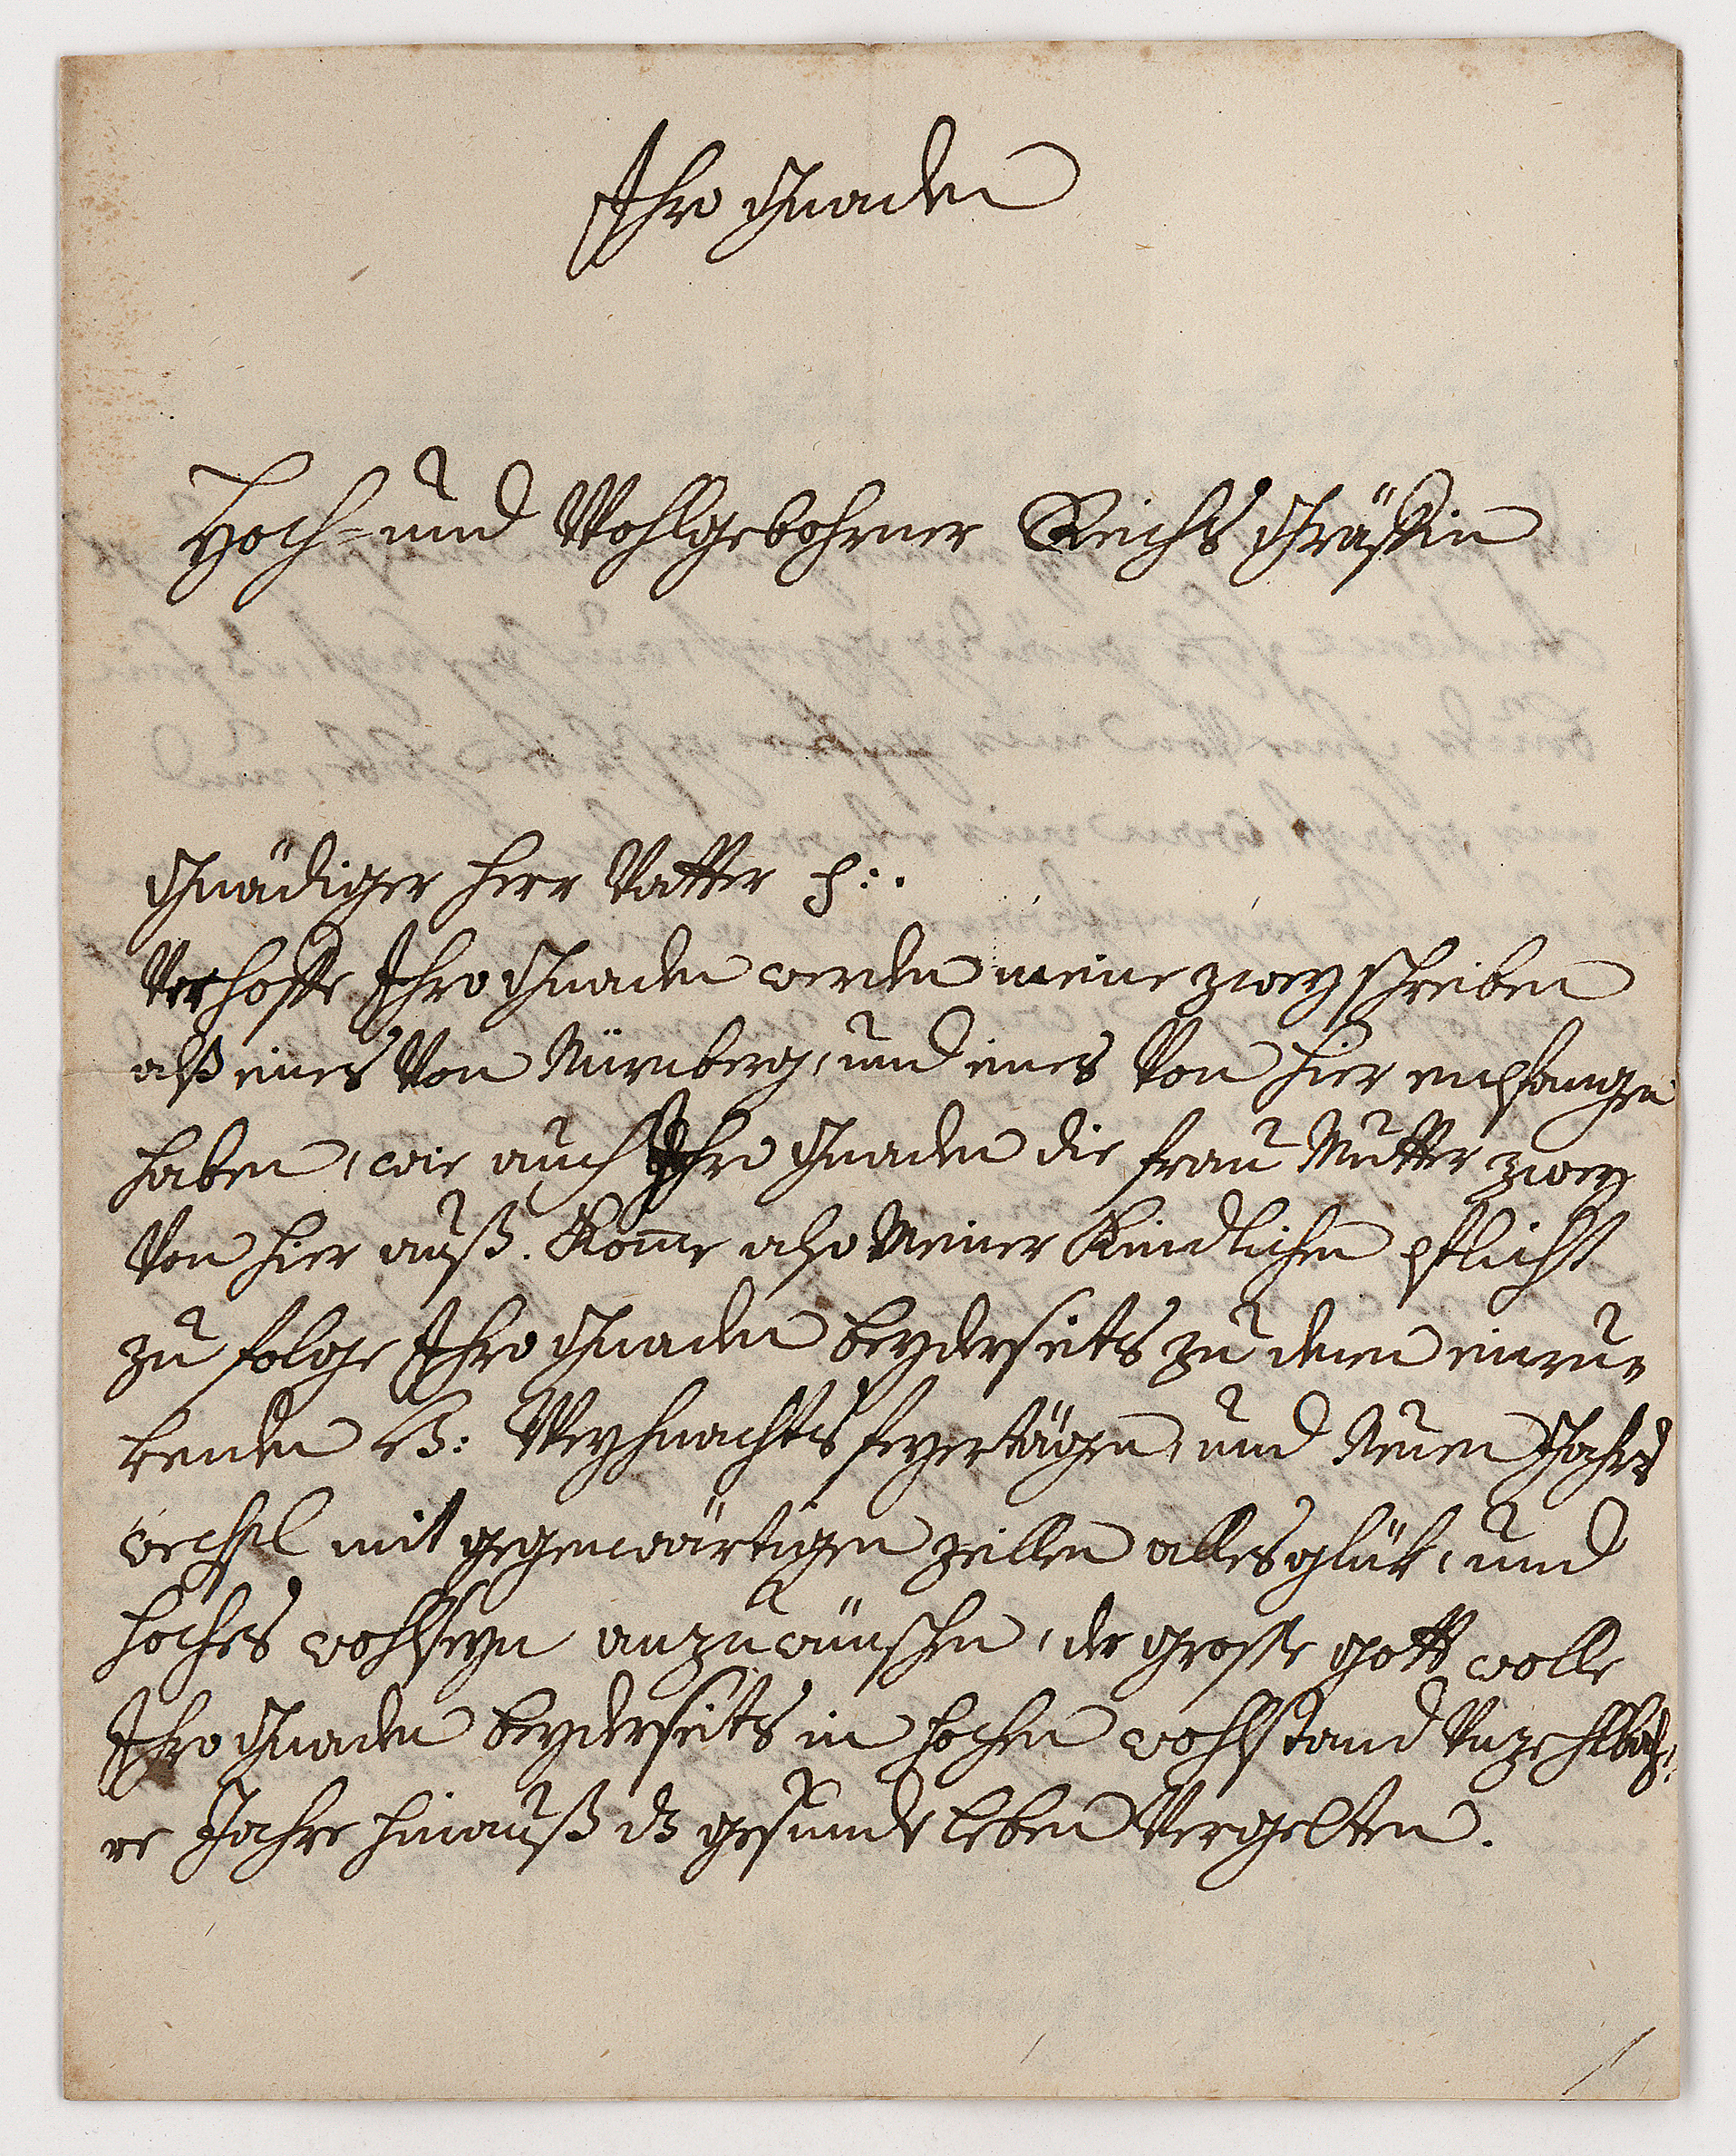 Ihro Gnaden
Hoch- und Wohlgebohrner Reichs Gräffin
Gnädiger Herr Vatter
Verhoffe Ihro Gnaden werden meine zwey schreiben
alß eines Von Nürnberg, und eines Von hier empfangen
haben, wie auch Ihro Gnaden die Frau Mutter zwey
Von hier auß. Kom̅e also Meiner Kindlichen pflicht
zu folge Ihro Gnaden beyderseits zu denen einru-
kenden H: Weyhnachts feyertägen, und Neuen Jahrs
wechsel mit gegenwärtigen zeillen alles glük, und
hoches wohlseyn anzuwünschen, der grosse gott wolle
Ihro Gnaden beyderseits in hochen wohlstand Unzehlba-
re Jahre hinauß gesunde leben Vergelten.